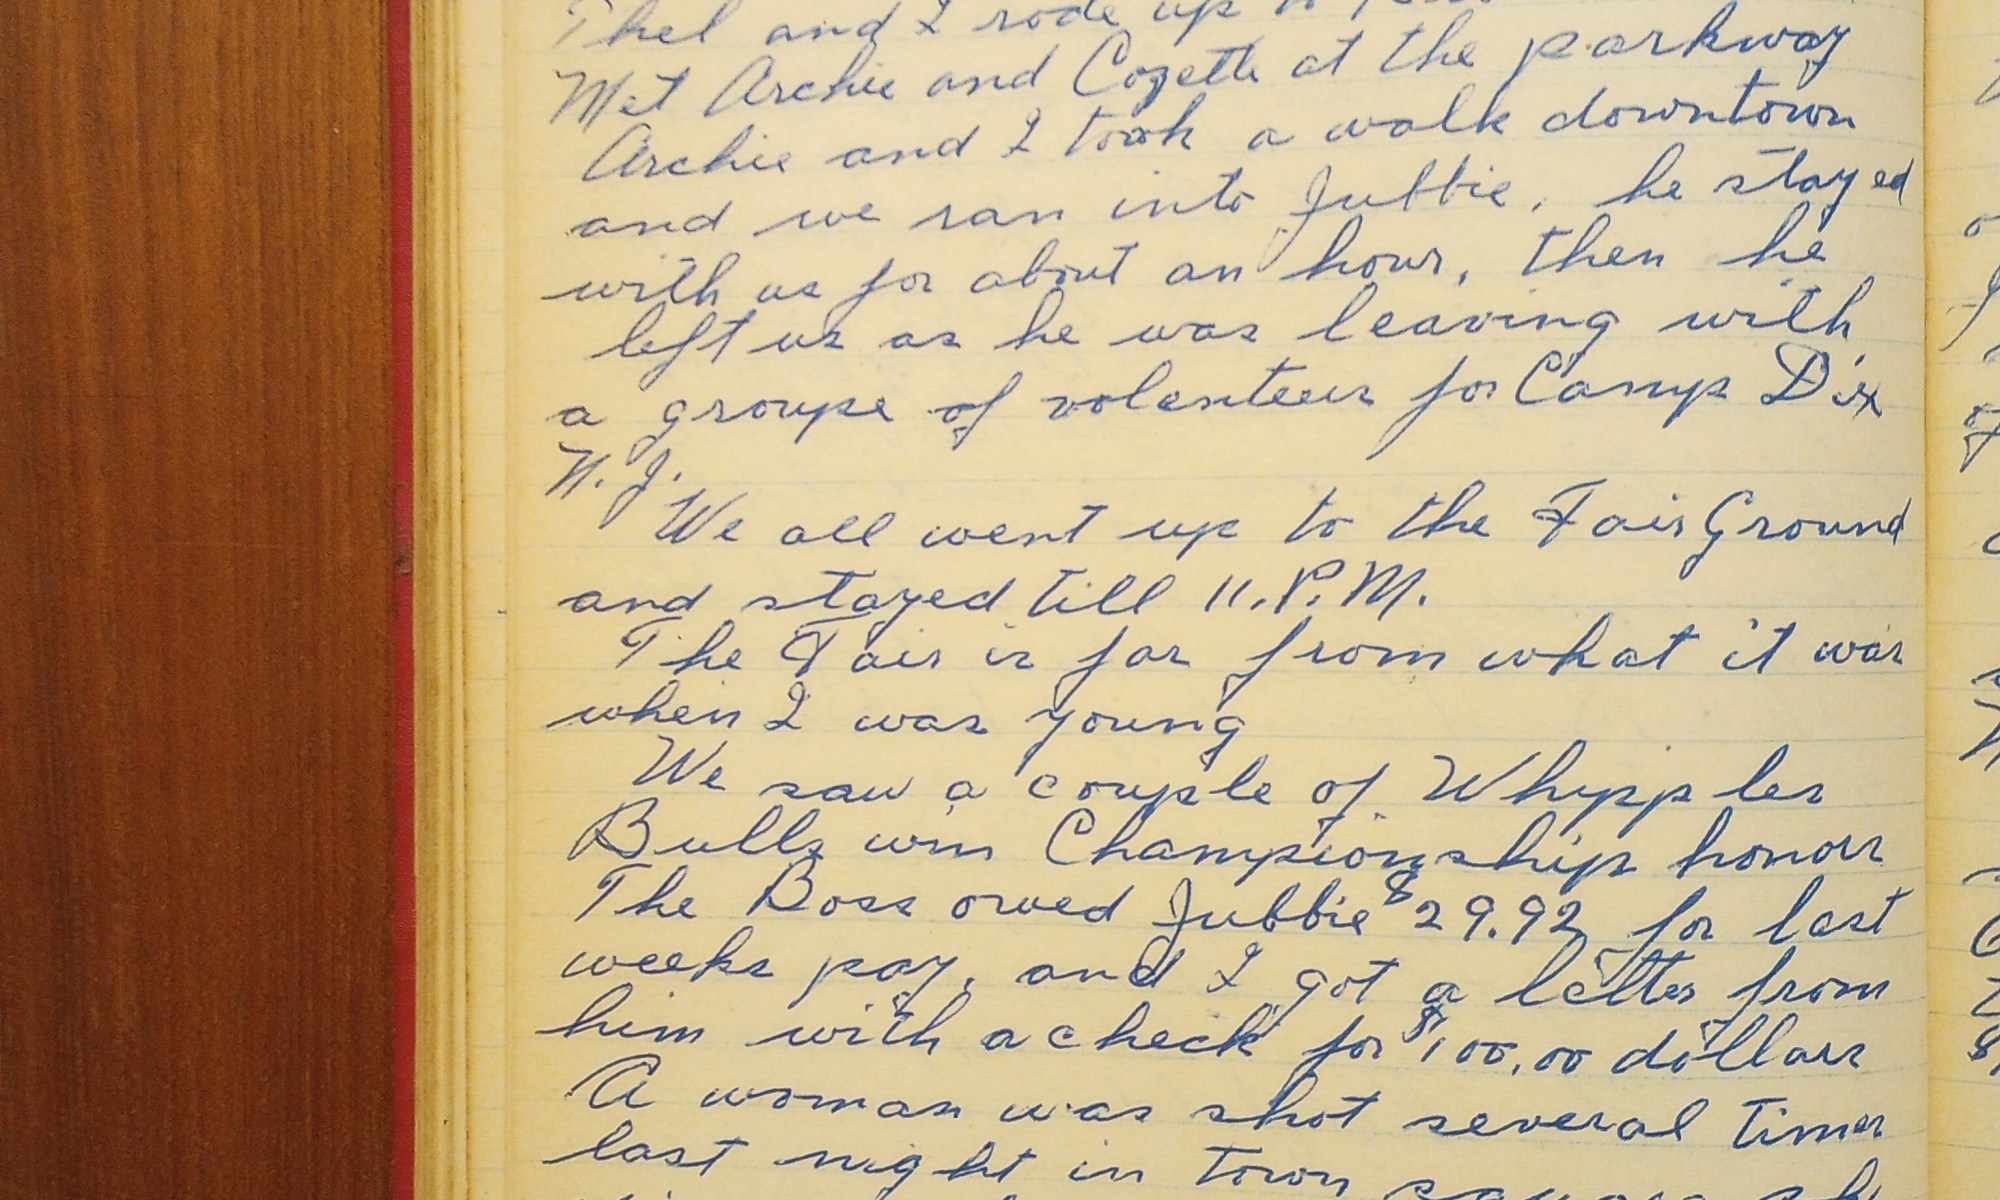 Thel and I rode up
Met Archie and Cozette at the parkway
Archie and I took a walk downtown
and we ran into Jubbie, he stayed
with us for about an hour, then he
left us as he was leaving with
a groupe of volenteers for Camp Dix
N. J.
We all went up to the Fair Ground
and stayed till 11. P. M.
The Fair is far from what it was
when I was young
We saw a couple of Whipples
Bulls win Championship honors
The Boss owed Jubbie $29.92 for last
weeks pay, and I got a letter from
him with a check for $100.00 dollars
A woman was shot several times
last night in town